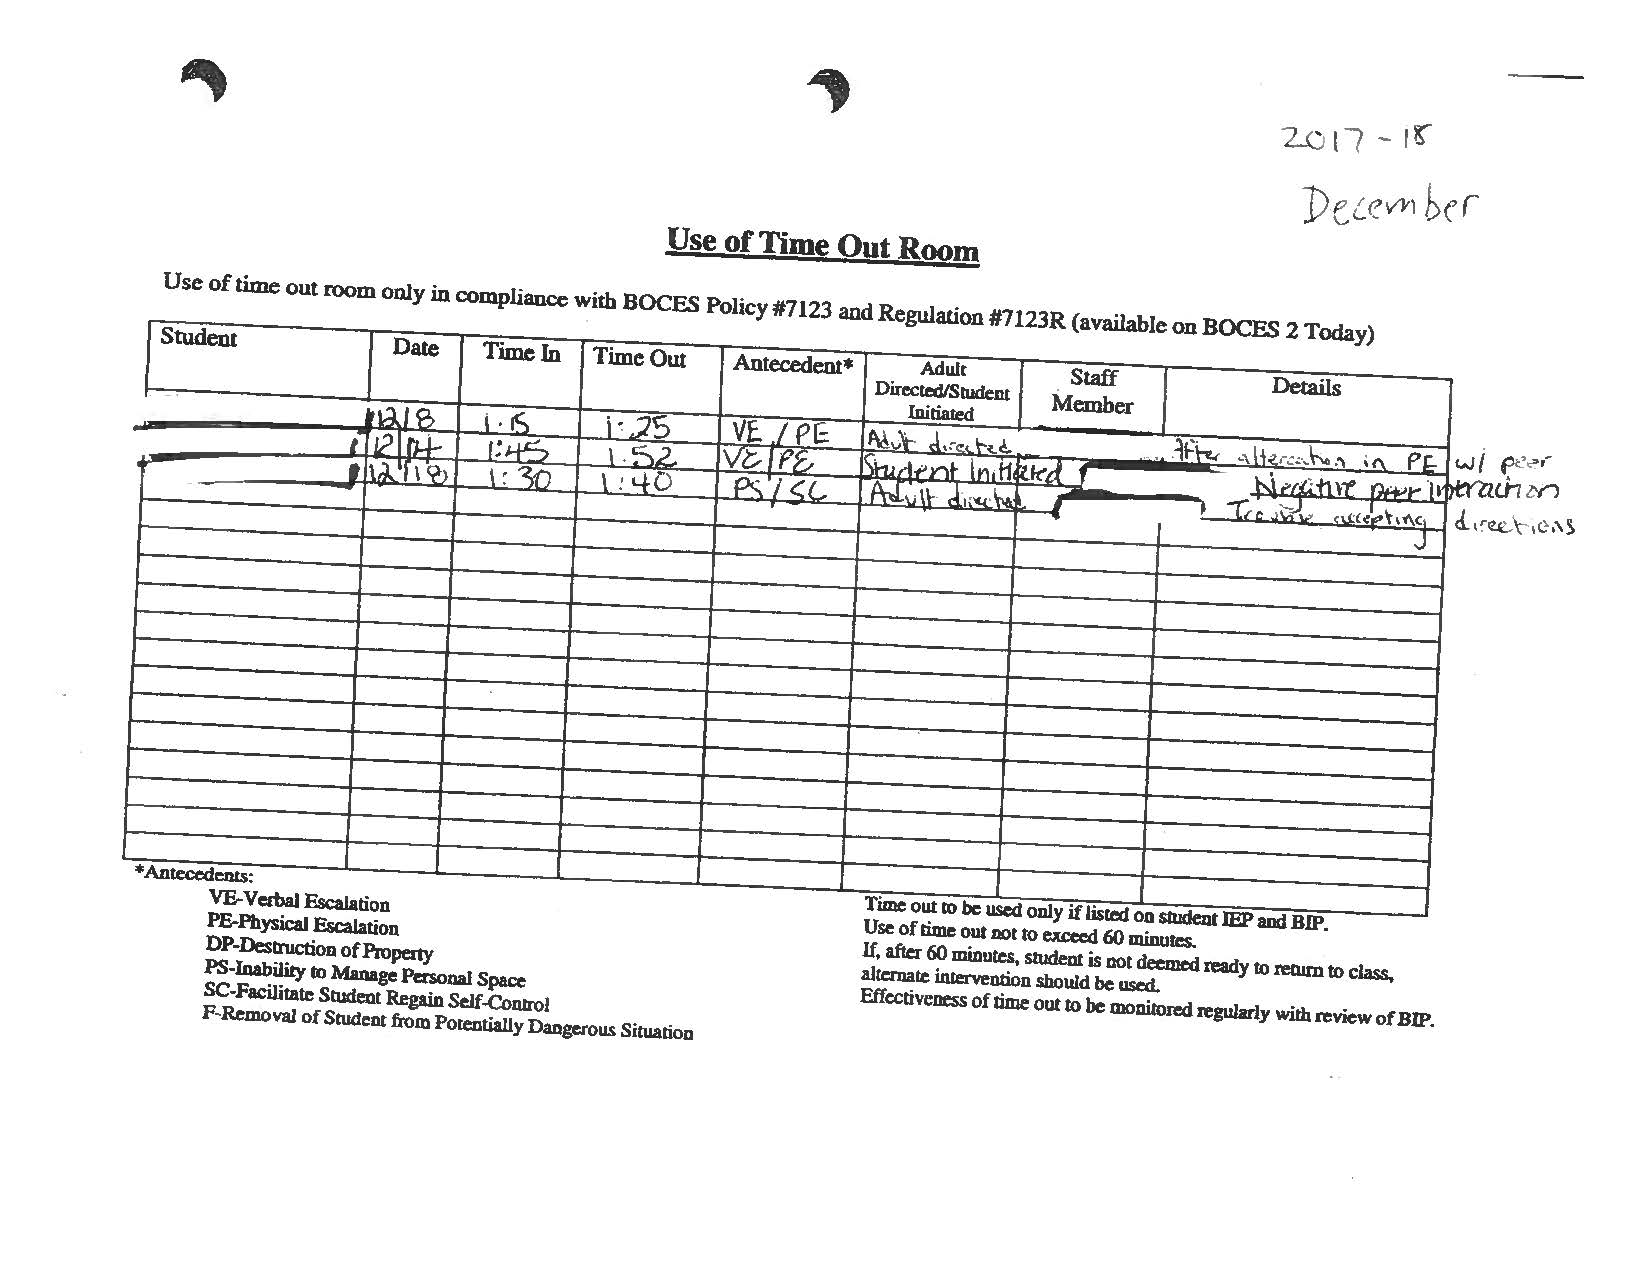 2017-18
December
Use of Time Out Room
Use of time out room only in compliance with BOCES Policy #7123 and Regulation #7123R (available on BOCES 2 Today)
Student Date Time In Time Out Antecedent* Adult Directed/Student Initiated Staff Member Details
12/8 1:15 1:25 VE/PE Adult directed After altercation in PE w/ peer
12/14 1:45 1:52 VE/PE Student Initiated Negative peer interaction
12/18 1:30 1:40 PS/SC Adult directed Trouble accepting directions
*Antecedents:
VE-Verbal Escalation
PE-Physical Escalation
DP-Destruction of Property
PS-Inability to Manage Personal Space
SC-Facilitate Student Regain Self-Control
F-Removal of Student from Potentially Dangerous Situation
Time out to be used only if listed on student IEP and BIP.
Use of time out not to exceed 60 minutes.
If, after 60 minutes, student is not deemed ready to return to class,
alternate intervention should be used.
Effectiveness of time out to be monitored regularly with review of BIP.